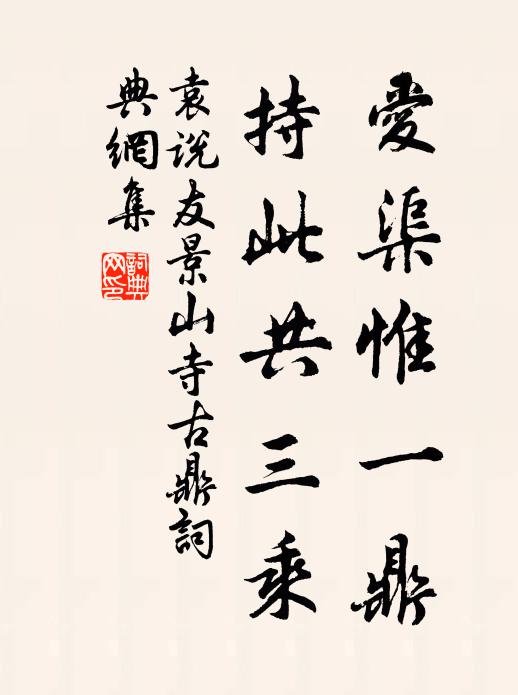 愛渠惟一鼎
持此共三乘
袁說友景山寺古鼎詞
典網集
詞典
网印